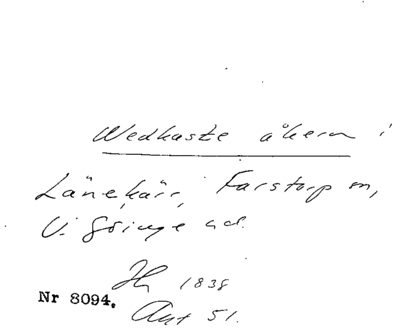 Wedkaste åkern i
Länekärr, Farstorp sn,
V. Göinge hd.
Hn 1838
Nr 8094.
Akt 51.